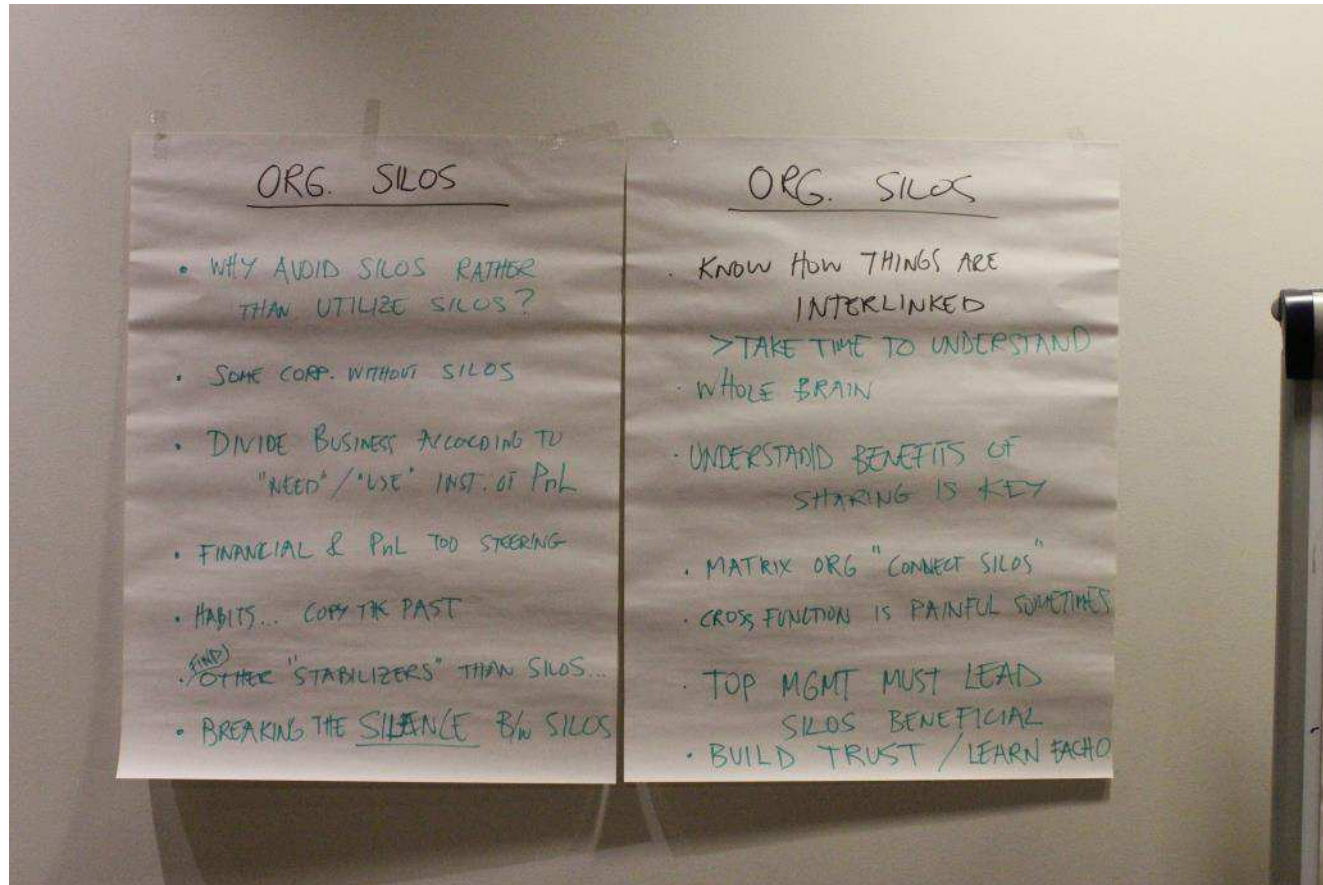 ORG. SILOS
• WHY AVOID SILOS RATHER
THAN UTILIZE SILOS?
• SOME CORP. WITHOUT SILOS
• DIVIDE BUSINESS ACCOCDING TO
"NEED"/"USE" INST. OF PnL
• FINANCIAL & PnL TOO STEERING
• HABITS... COPY THE PAST
(FIND)
• OTHER "STABILIZERS" THAN SILOS...
• BREAKING THE SILENCE B/w SILOS
ORG. SILOS
• KNOW HOW THINGS ARE
INTERLINKED
>TAKE TIME TO UNDERSTAND
• WHOLE BRAIN
• UNDERSTAND BENEFITS OF
SHARING IS KEY
• MATRIX ORG "CONNECT SILOS"
• CROSS FUNCTION IS PAINFUL SOMETIMES
• TOP MGMT MUST LEAD
SILOS BENEFICIAL
• BUILD TRUST / LEARN EACHO